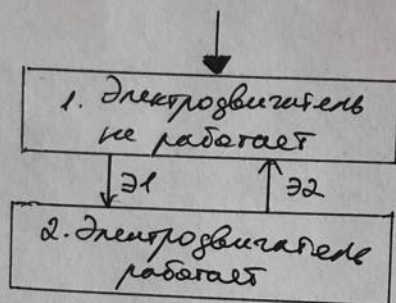 1. Электродвигатель
не работает
Э1
Э2
2. Электродвигатель
работает